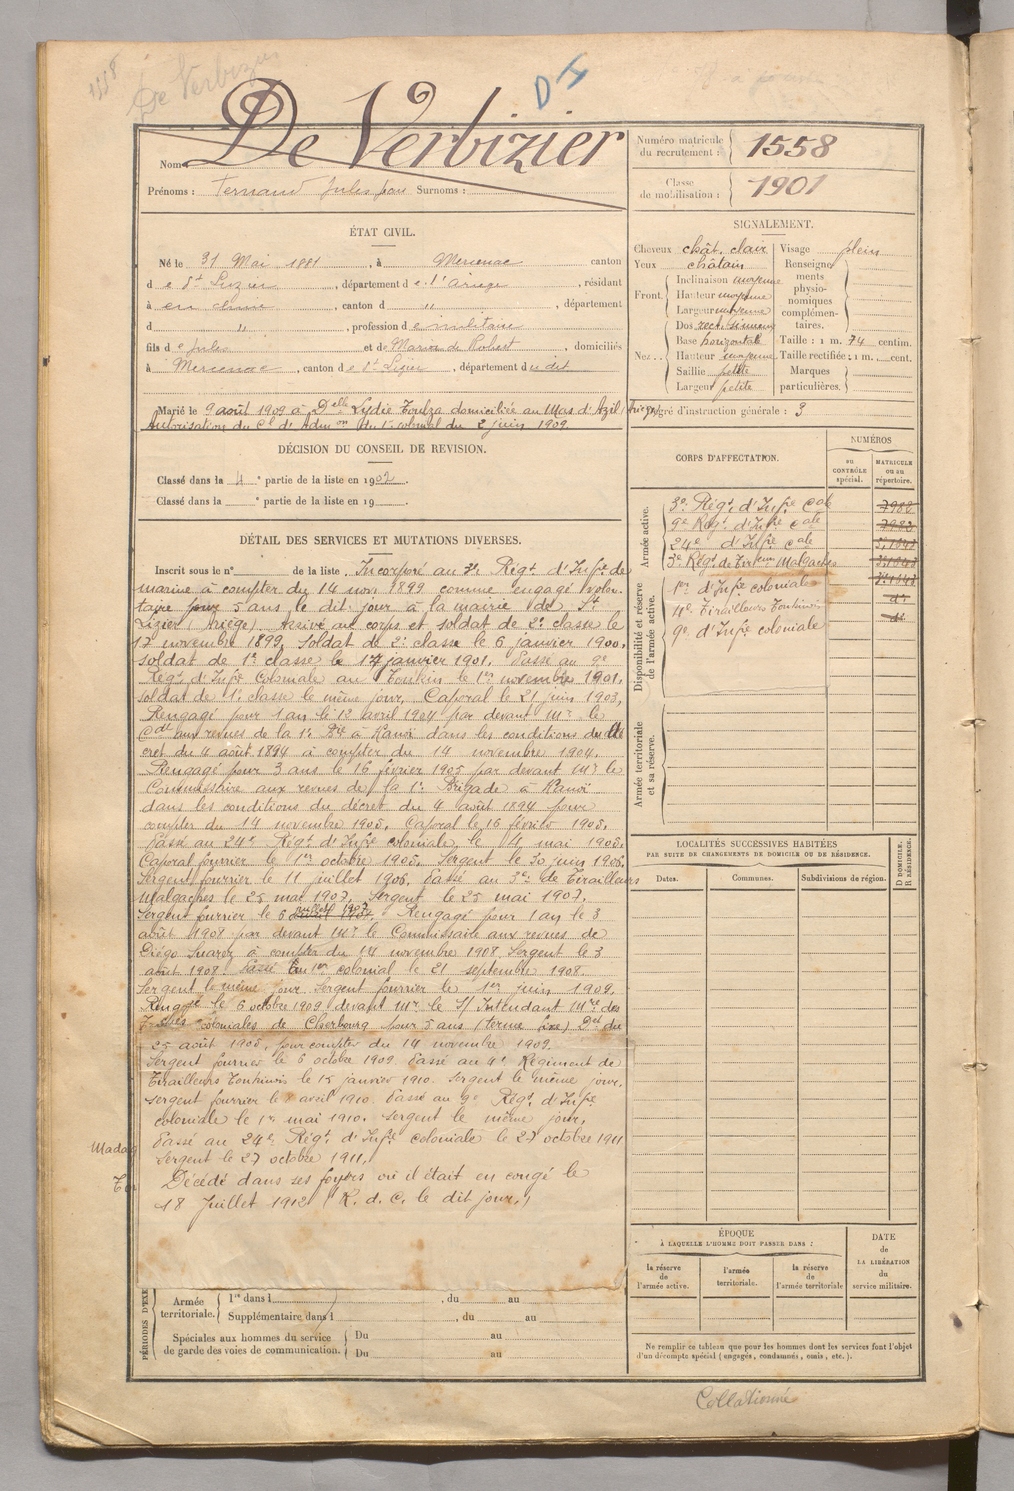 1558
De Verbizier
D I
Nom De Verbizier
Prénoms : Fernand Jules Surnoms :
Numéro matricule du recrutement : 1558
Classe de mobilisation : 1901
ÉTAT CIVIL.
Né le 31 Mai 1881, à Mercenac canton
de St Lizier, département de l'Ariège, résidant
à en Chine, canton d „, département
d „, profession de militaire
fils de Jules et de Maria de Robert, domiciliés
à Mercenac, canton de St Lizier, département du dit
Marié le 9 août 1909 à Delle Lydie Toulza domiciliée au Mas d'Azil (Ariège)
Autorisation du Cl d'Admon du 1er colonial du 2 juin 1909.
DÉCISION DU CONSEIL DE REVISION.
Classé dans la 4e partie de la liste en 1902.
Classé dans la e partie de la liste en 19 .
DÉTAIL DES SERVICES ET MUTATIONS DIVERSES.
Inscrit sous le n° de la liste. Incorporé au 3e Régt d'Infie de
marine à compter du 14 nov. 1899 comme engagé volon-
taire pour 5 ans le dit jour à la mairie de St
Lizier (Ariège). Arrivé au corps et soldat de 2e classe le
17 novembre 1899. Soldat de 2e classe le 6 janvier 1900.
soldat de 1e classe le 17 janvier 1901. Passé au 9e
Régt d'Infie Coloniale au Tonkin le 1er novembre 1901.
soldat de 1e classe le même jour. Caporal le 21 juin 1903.
Rengagé pour 1 an le 13 avril 1904 par devant Mr le
Cdt aux revues de la 1e Bde à Hanoï dans les conditions du dé
cret du 4 août 1894 à compter du 14 novembre 1904.
Rengagé pour 3 ans le 16 février 1905 par devant Mr le
Commissaire aux revues de la 1e Brigade à Hanoï
dans les conditions du décret du 4 août 1894 pour
compter du 14 novembre 1905. Caporal le 16 février 1905.
Passé au 24e Régt d'Infie coloniale, le 4 mai 1905.
Caporal fourrier le 1er octobre 1905. Sergent le 30 juin 1906.
Sergent fourrier le 11 juillet 1906. Passé au 3e de Tirailleurs
Malgaches le 25 mai 1907. Sergent le 25 mai 1907.
Sergent fourrier le 6 juillet 1907. Rengagé pour 1 an le 3
août 1908 par devant Mr le Commissaire aux revues de
Diégo Suarez à compter du 14 novembre 1908. Sergent le 3
août 1908. Passé au 1er colonial le 21 septembre 1908.
Sergent le même jour. Sergent fourrier le 1er juin 1909.
Rengagé le 6 octobre 1909 devant Mr le S/ Intendant Mre des
Troupes coloniales de Cherbourg pour 5 ans (terme fixe) Det du
25 août 1905, pour compter du 14 novembre 1909.
Sergent fourrier le 6 octobre 1909. Passé au 4e Régiment de
Tirailleurs Tonkinois le 15 janvier 1910. Sergent le même jour.
Sergent fourrier le 8 avril 1910. Passé au 9e Régt d'Infie
coloniale le 1er mai 1910. Sergent le même jour.
Passé au 24e Régt d'Infie coloniale le 27 octobre 1911
Sergent le 27 octobre 1911.
Décédé dans ses foyers où il était en congé le
18 Juillet 1912 (R. d. C. le dit jour.)
Madag
To
PÉRIODES D'EXE
Armée territoriale.
1re dans l , du au
Supplémentaire dans l , du au
Spéciales aux hommes du service de garde des voies de communication.
Du au
Du au
SIGNALEMENT.
Cheveux chât. clair
Yeux châtain
Front. Inclinaison moyenne
Hauteur moyenne
Largeur moyenne
Nez.. Dos rect. sinueux
Base horizontale
Hauteur moyenne
Saillie petite
Largeur petite
Visage plein
Renseignements physionomiques complémentaires.
Taille : 1 m. 74 centim.
Taille rectifiée : 1 m. cent.
Marques particulières.
Degré d'instruction générale : 3
CORPS D'AFFECTATION.
NUMÉROS
au CONTRÔLE spécial.
MATRICULE ou au répertoire.
Armée active.
3e Régt d'Infie Cale 7982
9e Régt d'Infie Cale 7982
24e d'Infie Cale
3e Régt de Tirailleurs Malgaches
Disponibilité et réserve de l'armée active.
1er d'Infie coloniale
4e Tirailleurs Tonkinois
9e d'Infie coloniale
Armée territoriale et sa réserve.
LOCALITÉS SUCCESSIVES HABITÉES
PAR SUITE DE CHANGEMENTS DE DOMICILE OU DE RÉSIDENCE.
D DOMICILE.
R RÉSIDENCE.
Dates.
Communes.
Subdivisions de région.
ÉPOQUE
À LAQUELLE L'HOMME DOIT PASSER DANS :
la réserve de l'armée active.
l'armée territoriale.
la réserve de l'armée territoriale
DATE de LA LIBÉRATION du service militaire.
Ne remplir ce tableau que pour les hommes dont les services font l'objet
d'un décompte spécial (engagés, condamnés, omis, etc.).
Collationné